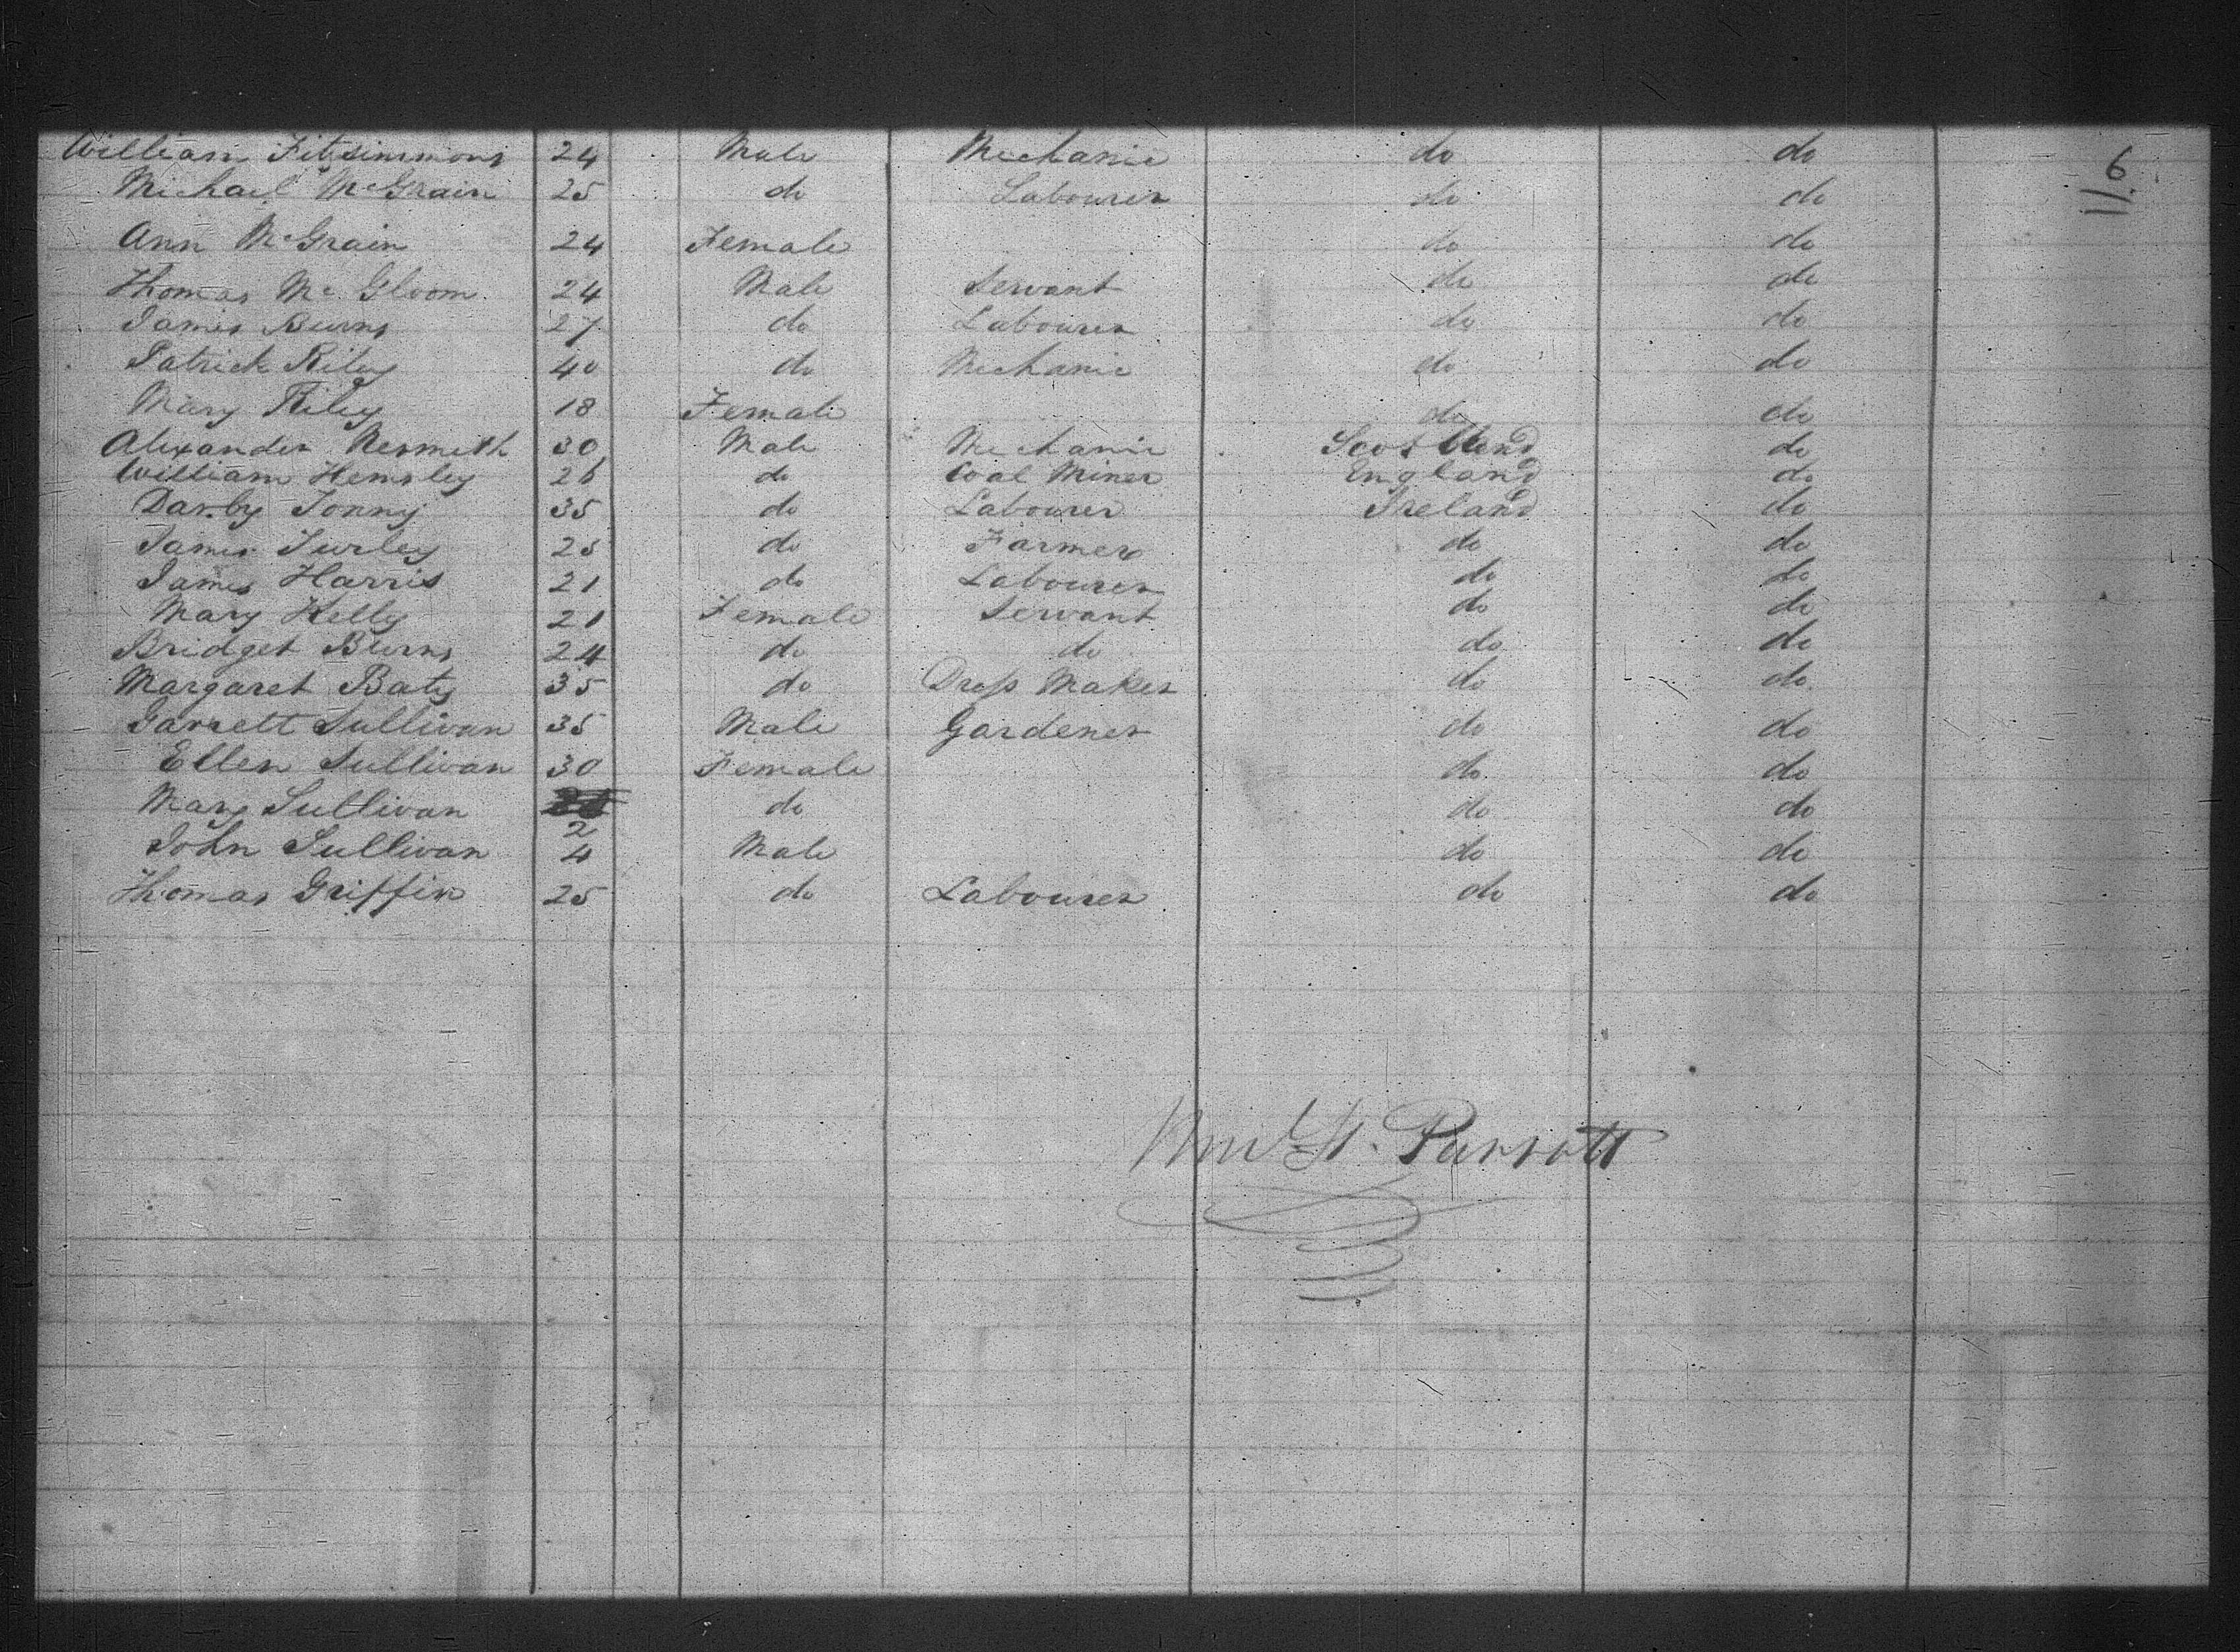 William Fitzsimmons 24 Male Mechanic do do 6
Michael McGrain 25 do Labourer do do
Ann McGrain 24 Female do do
Thomas McGloom 24 Male Servant do do
James Burns 27 do Labourer do do
Patrick Riley 40 do Mechanic do do
Mary Riley 18 Female do do
Alexander Nesmith 30 Male Mechanic Scotland do
William Hemsley 26 do Coal Miner England do
Darby Tonny 35 do Labourer Ireland do
James Turley 25 do Farmer do do
James Harris 21 do Labourer do do
Mary Kelly 21 Female Servant do do
Bridget Burns 24 do do do do
Margaret Baty 35 do Dress Maker do do
Garrett Sullivan 35 Male Gardener do do
Ellen Sullivan 30 Female do do
Mary Sullivan 2 do do do
John Sullivan 4 Male do do
Thomas Griffin 25 do Labourer do do
Parrott